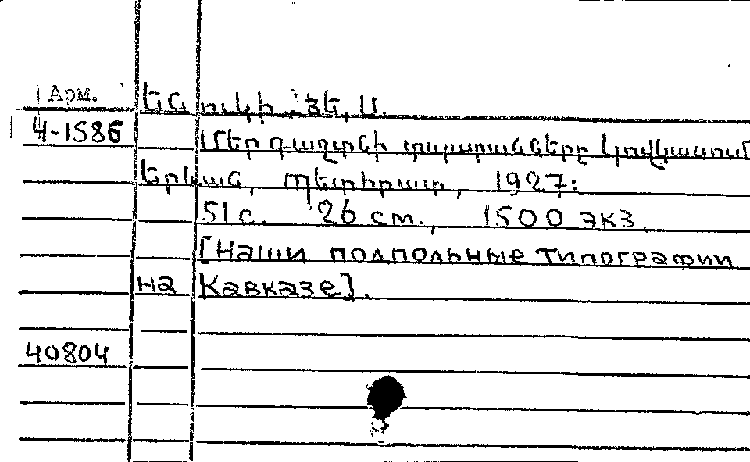 Арм.
Ենուկիձե, Ա.
4-1586
Մեր գաղտնի տպարանները Կովկասում
Երևան, Պետհրատ, 1927:
51 с. 26 см., 1500 экз.
[Наши подпольные типографии
на Кавказе].
40804